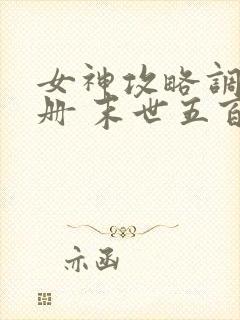 女神攻略調
册 末世五百
亦函